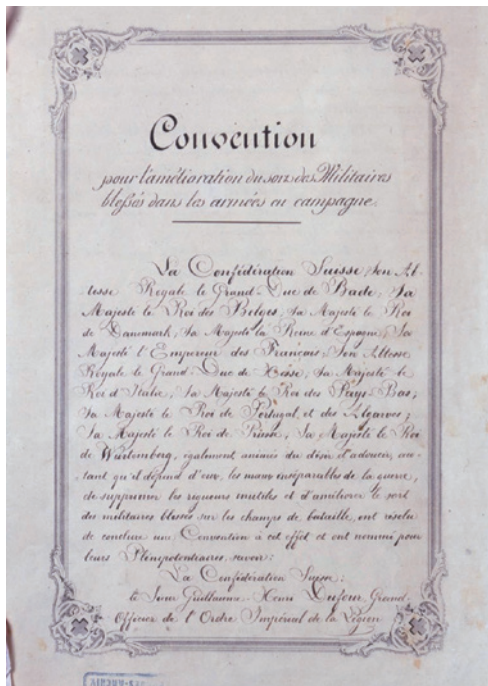 Convention
pour l'amélioration du sort des Militaires
blessés dans les armées en campagne.
La Confédération Suisse, Son Al-
tesse Royale le Grand-Duc de Bade, Sa
Majesté le Roi des Belges, Sa Majesté le Roi
de Danemark, Sa Majesté la Reine d'Espagne, Sa
Majesté l'Empereur des Français, Son Altesse
Royale le Grand-Duc de Hesse, Sa Majesté le
Roi d'Italie, Sa Majesté le Roi des Pays-Bas,
Sa Majesté le Roi de Portugal et des Algarves,
Sa Majesté le Roi de Prusse, Sa Majesté le Roi
de Würtemberg, également animés du désir d'adoucir, au-
tant qu'il dépend d'eux, les maux inséparables de la guerre,
de supprimer les rigueurs inutiles et d'améliorer le sort
des militaires blessés sur les champs de bataille, ont résolu
de conclure une Convention à cet effet et ont nommé pour
leurs Plénipotentiaires, savoir:
La Confédération Suisse:
le Sieur Guillaume-Henri Dufour, Grand-
Officier de l'Ordre Impérial de la Légion